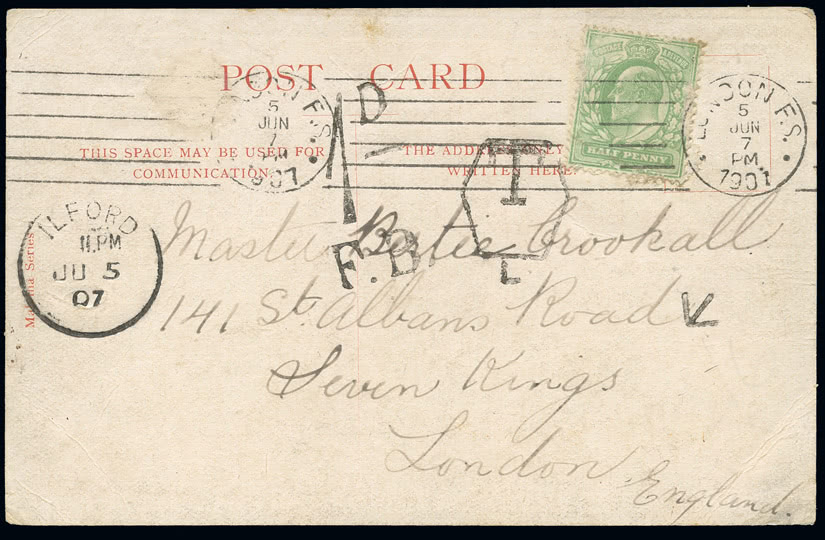 POST CARD
POSTAGE
HALF PENNY
THIS SPACE MAY BE USED FOR
COMMUNICATION
THE ADDRESS ONLY
WRITTEN HERE
LONDON F.S.
5
JUN
7 PM
1907
LONDON F.S.
5
JUN
7 PM
1907
1 D
F.B
T
L
ILFORD
11.PM
JU 5
07
Series
Master Bertie Crookall
141 St. Albans Road
Seven Kings
London
England.